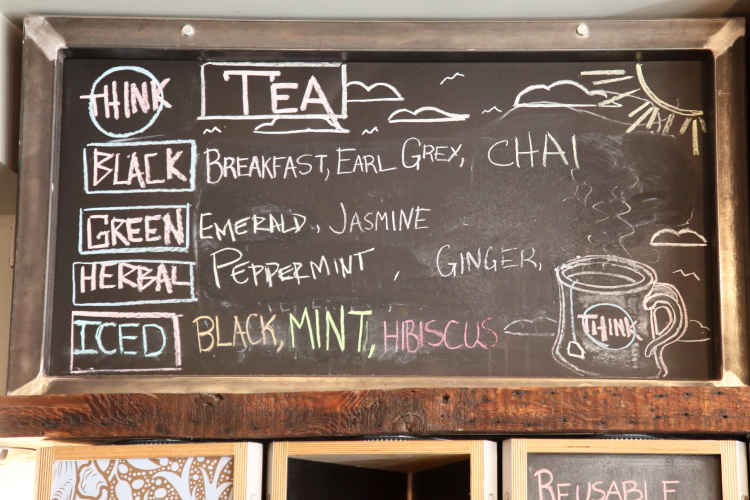 THINK TEA
BLACK BREAKFAST, EARL GREY, CHAI
GREEN EMERALD, JASMINE
HERBAL PEPPERMINT, GINGER,
ICED BLACK, MINT, HIBISCUS
THINK
REUSABLE